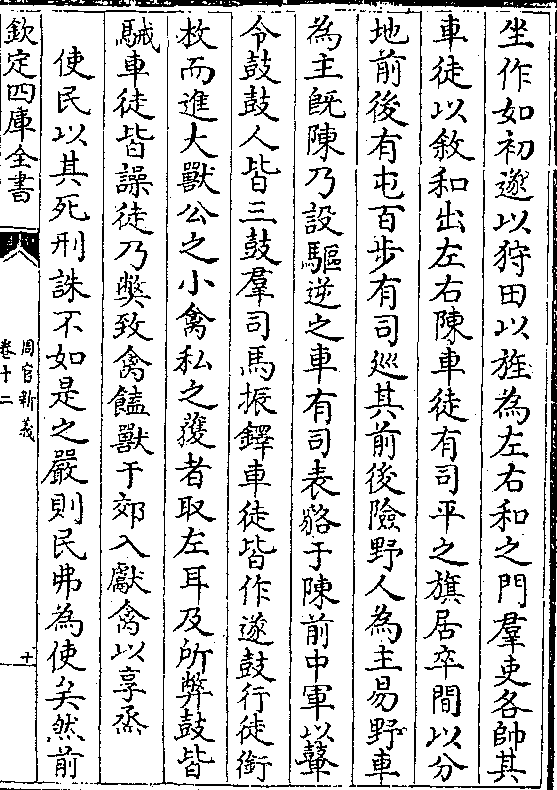 坐作如初遂以狩田以旌為左右和之門羣吏各帥其
車徒以敘和出左右陳車徒有司平之旗居卒間以分
地前後有屯百步有司巡其前後險野人為主易野車
為主旣陳乃設驅逆之車有司表貉于陳前中軍以鼙
令鼓鼓人皆三鼓羣司馬振鐸車徒皆作遂鼓行徒銜
枚而進大獸公之小禽私之獲者取左耳及所弊鼓皆
駴車徒皆譟徒乃弊致禽饁獸于郊入獻禽以享烝
使民以其死刑誅不如是之嚴則民弗為使矣然前
欽定四庫全書
周官新義
卷十二
十